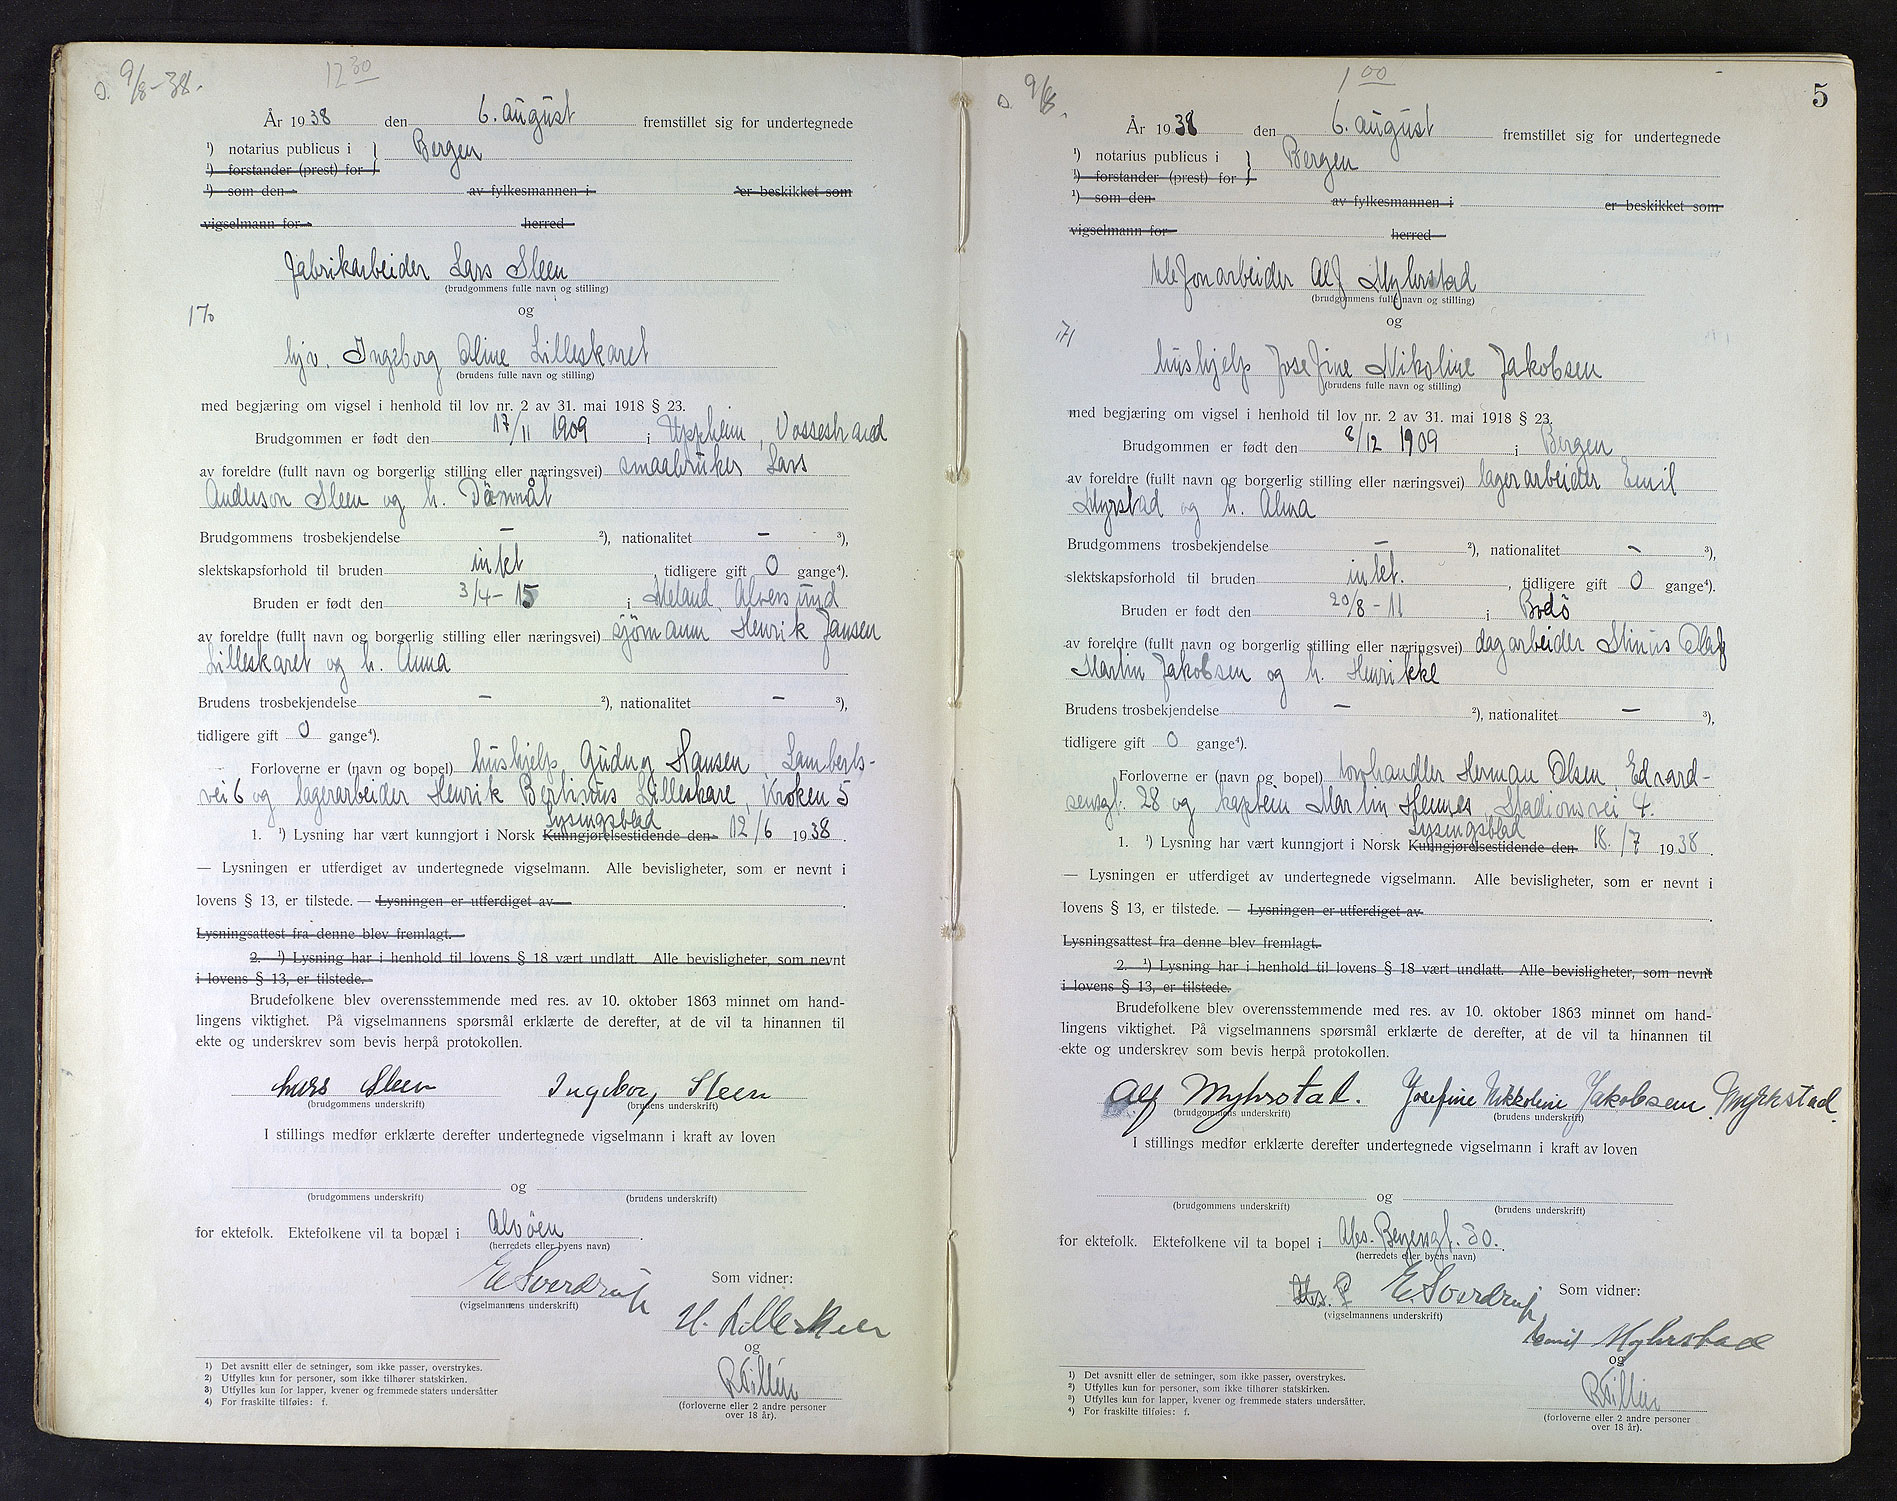 9/8-38.
12 30
År 1938 den 6. august fremstillet sig for undertegnede
¹) notarius publicus i } Bergen
¹) forstander (prest) for
¹) som den av fylkesmannen i er beskikket som
vigselmann for herred
fabrikarbeider Lars Sleen
(brudgommens fulle navn og stilling)
170
og
hjv. Ingeborg Oline Lilleskaret
(brudens fulle navn og stilling)
med begjæring om vigsel i henhold til lov nr. 2 av 31. mai 1918 § 23.
Brudgommen er født den 17/11 1909 i Oppheim, Vossestrand
av foreldre (fullt navn og borgerlig stilling eller næringsvei) smaabruker Lars
Anderson Sleen og h.
Brudgommens trosbekjendelse — ²), nationalitet — ³),
slektskapsforhold til bruden intet, tidligere gift 0 gange⁴).
Bruden er født den 3/4-15 i Meland, Alversund
av foreldre (fullt navn og borgerlig stilling eller næringsvei) sjömann Henrik Jansen
Lilleskaret og h. Anna
Brudens trosbekjendelse — ²), nationalitet — ³),
tidligere gift 0 gange⁴).
Forloverne er (navn og bopel) hushjelp Gudny Hansen, Lamberts-
vei 6 og lagerarbeider Henrik Bertinius Lilleskare, Kroken 5
Lysingsblad
1. ¹) Lysning har vært kunngjort i Norsk Kunngjørelsestidende den 12/6 1938.
— Lysningen er utferdiget av undertegnede vigselmann. Alle bevisligheter, som er nevnt i
lovens § 13, er tilstede. — Lysningen er utferdiget av
Lysningsattest fra denne blev fremlagt.
2. ¹) Lysning har i henhold til lovens § 18 vært undlatt. Alle bevisligheter, som nevnt
i lovens § 13, er tilstede.
Brudefolkene blev overensstemmende med res. av 10. oktober 1863 minnet om hand-
lingens viktighet. På vigselmannens spørsmål erklærte de derefter, at de vil ta hinannen til
ekte og underskrev som bevis herpå protokollen.
Lars Sleen Ingeborg Sleen
(brudgommens underskrift) (brudens underskrift)
I stillings medfør erklærte derefter undertegnede vigselmann i kraft av loven
og
(brudgommens underskrift) (brudens underskrift)
for ektefolk. Ektefolkene vil ta bopæl i Alvöen.
(herredets eller byens navn)
E Sverdrup
(vigselmannens underskrift)
Som vidner:
H. Lilleskare
og
(forloverne eller 2 andre personer
over 18 år).
1) Det avsnitt eller de setninger, som ikke passer, overstrykes.
2) Utfylles kun for personer, som ikke tilhører statskirken.
3) Utfylles kun for lapper, kvener og fremmede staters undersåtter
4) For fraskilte tilføies: f.
9/8.
1 00
5
År 1938 den 6. august fremstillet sig for undertegnede
¹) notarius publicus i } Bergen
¹) forstander (prest) for
¹) som den av fylkesmannen i er beskikket som
vigselmann for herred
telefonarbeider Alf Myhrstad
(brudgommens fulle navn og stilling)
171
og
hushjelp Josefine Nikoline Jakobsen
(brudens fulle navn og stilling)
med begjæring om vigsel i henhold til lov nr. 2 av 31. mai 1918 § 23.
Brudgommen er født den 8/12 1909 i Bergen
av foreldre (fullt navn og borgerlig stilling eller næringsvei) lagerarbeider Emil
Myrstad og h. Alma
Brudgommens trosbekjendelse — ²), nationalitet — ³),
slektskapsforhold til bruden intet., tidligere gift 0 gange⁴).
Bruden er født den 20/8-11 i Bodö
av foreldre (fullt navn og borgerlig stilling eller næringsvei) dagarbeider Olaf
Martin Jakobsen og h. Henrikke
Brudens trosbekjendelse — ²), nationalitet — ³),
tidligere gift 0 gange⁴).
Forloverne er (navn og bopel) Herman Olsen, Edvard-
sensgt. 28 og kaptein Martin Hennes, Stadionsvei 4.
Lysingsblad
1. ¹) Lysning har vært kunngjort i Norsk Kunngjørelsestidende den 18/7 1938.
— Lysningen er utferdiget av undertegnede vigselmann. Alle bevisligheter, som er nevnt i
lovens § 13, er tilstede. — Lysningen er utferdiget av
Lysningsattest fra denne blev fremlagt.
2. ¹) Lysning har i henhold til lovens § 18 vært undlatt. Alle bevisligheter, som nevnt
i lovens § 13, er tilstede.
Brudefolkene blev overensstemmende med res. av 10. oktober 1863 minnet om hand-
lingens viktighet. På vigselmannens spørsmål erklærte de derefter, at de vil ta hinannen til
ekte og underskrev som bevis herpå protokollen.
Alf Myhrstad. Josefine Nikkoline Jakobsen Myhrstad.
(brudgommens underskrift) (brudens underskrift)
I stillings medfør erklærte derefter undertegnede vigselmann i kraft av loven
og
(brudgommens underskrift) (brudens underskrift)
for ektefolk. Ektefolkene vil ta bopel i Abs. Beyersgt. 30.
(herredets eller byens navn)
E. Sverdrup
(vigselmannens underskrift)
Som vidner:
Emil Myhrstad
og
(forloverne eller 2 andre personer
over 18 år).
1) Det avsnitt eller de setninger, som ikke passer, overstrykes.
2) Utfylles kun for personer, som ikke tilhører statskirken.
3) Utfylles kun for lapper, kvener og fremmede staters undersåtter.
4) For fraskilte tilføies: f.